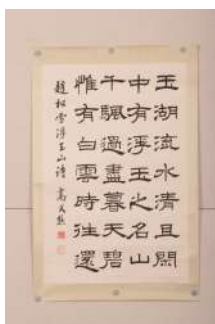 玉湖流水清且閑
中有浮玉之名山
千颿過盡暮天碧
惟有白雲時往還
趙松雪浮玉山詩